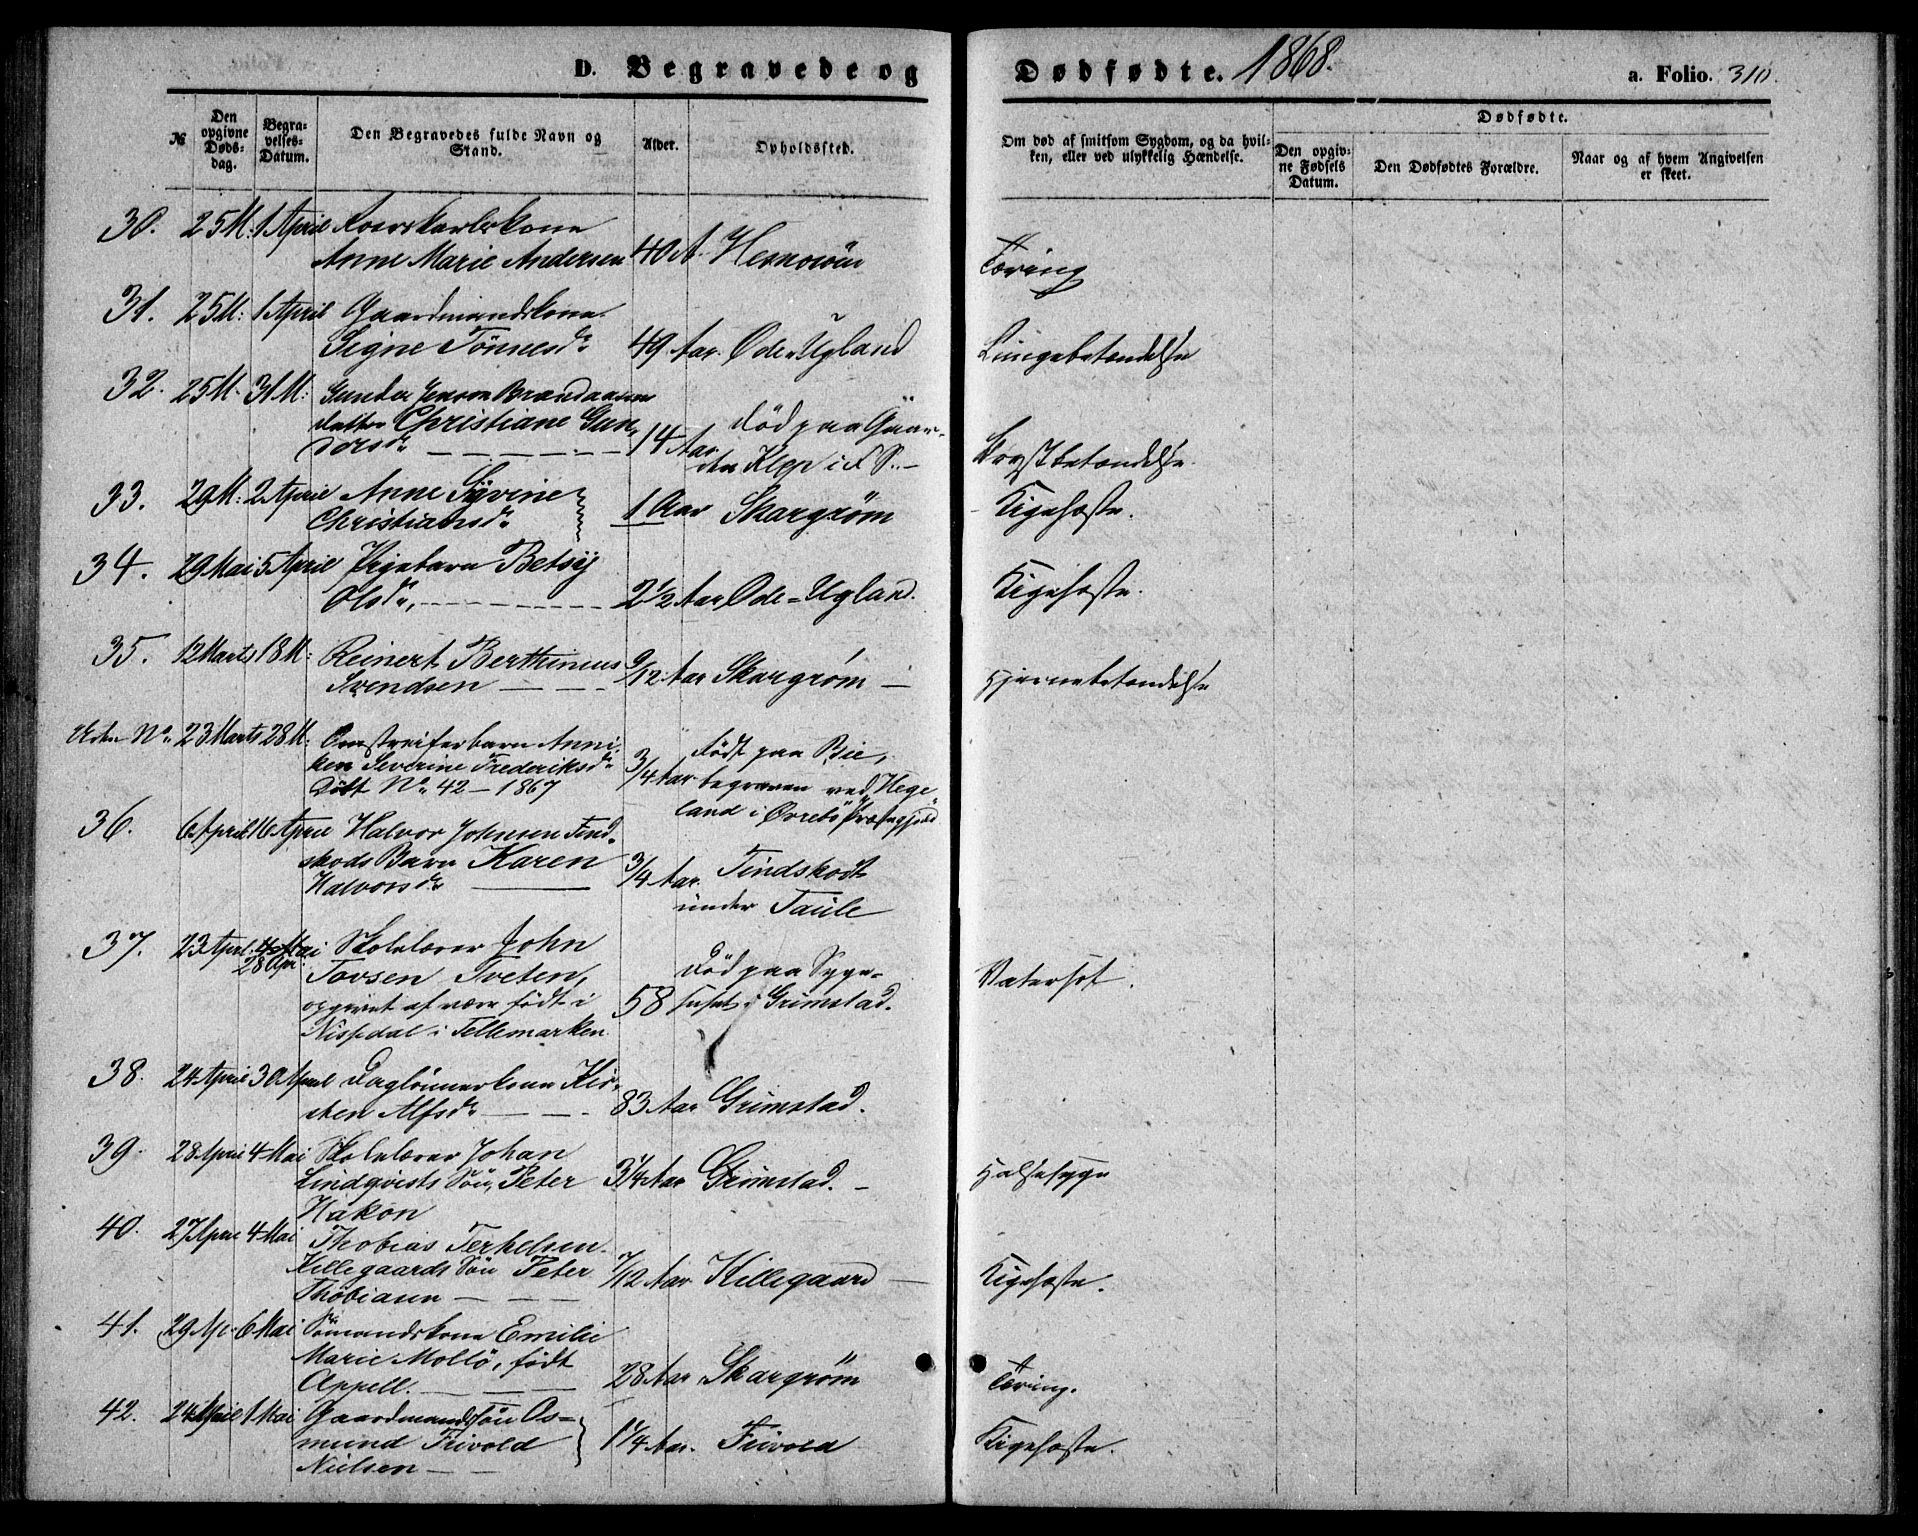 D. Begravede og Dødfødte. 1868. a. Folio. 310.
№
Den opgivne Døds-dag.
Begra-velses-Datum.
Den Begravedes fulde Navn og Stand.
Alder.
Opholdssted.
Om død af smitsom Sygdom, og da hvil-
ken, eller ved ulykkelig Hændelse.
Dødfødte.
Den opgiv-
ne Fødsels
Datum.
Den Dødfødtes Forældre.
Naar og af hvem Angivelsen
er skeet.
30. 25 M: 1 April
Anne Marie Andersen 40 A. Tæring
31. 25 M: 1 April Gaardmandskone
Signe Tønnesdr 49 Aar. Øde-Ugland Lungebetændelse
32. 25 M. 31 M: Gunder Jenson
Datter Christiane Gun-
dersdr 14 Aar død paa Gaar-
den Klep i F S. Brystbetændelse
33. 29 M: 2 April Anne Syvine
Christiansdr 1 Aar Skargrøm Kigehoste.
34. 29 Mai 5 April Pigebarn Betsy
Olsdr, 2½ Aar Øde-Ugland. Kigehoste.
35. 12 Marts 18 M: Reinert Berthinius
Svendsen 9/12 Aar Skargrøm Hjernebetændelse
Uden No. 23 Marts 28 M. Omstreiferbarn Anni-
ken Severine Frederiksdr
Døbt No. 42 - 1867 3/4 Aar Født paa Bie,
begraven ved Hege-
land i Øvrebø Præstegjeld
36. 6 April 16 April Halvor Johnsen Tind-
skods Barn Karen
Halvorsdr 3/4 Aar. Tindskodt
under Taule
37. 23 April. 4 Mai
28 Apr: Skolelærer John
Tovsen Tveten,
opgivet at være født i
Nissedal i Tellemarken. 58 Død paa Syge-
huset i Grimstad. Vatersot.
38. 24 April 30 April Daglønnerkone Kir-
sten Alfsdr 83 Aar Grimstad.
39. 28 April 4 Mai Skolelærer Johan
Lindqvists Søn, Peter
Hakon 3¼ Aar Grimstad. Halssyge
40. 27 April 4 Mai Thobias Terkelsen
Killegaards Søn Peter
Thobiasen 7/12 Aar Killegaard Kigehoste.
41. 29 Ap. 6 Mai Sømandskone Emilie
Marie Mollø, født
Appell. 28 Aar Skargrøm Tæring.
42. 24 April 1 Mai Gaardmandssøn Os-
mund Frivold
Nielsen 1¼ Aar. Frivold Kigehoste.